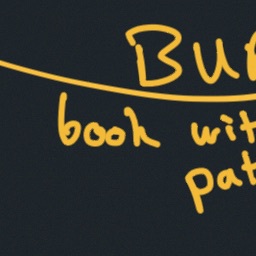 BUR
book wit
pat